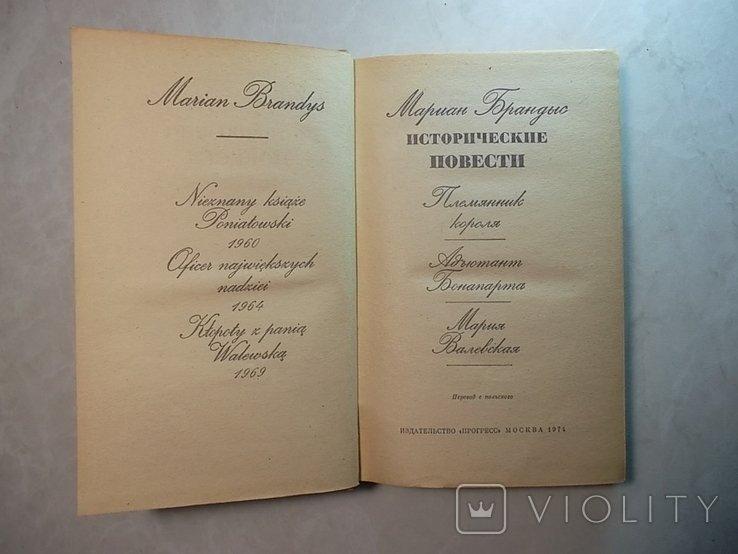 Marian Brandys
Nieznany książe
Poniatowski
1960
Oficer największych
nadziei
1964
Kłopoty z panią
Walewską
1969
Мариан Брандыс
ИСТОРИЧЕСКИЕ
ПОВЕСТИ
Племянник
короля
Адъютант
Бонапарта
Мария
Валевская
Перевод с польского
ИЗДАТЕЛЬСТВО «ПРОГРЕСС» МОСКВА 1974
VIOLITY